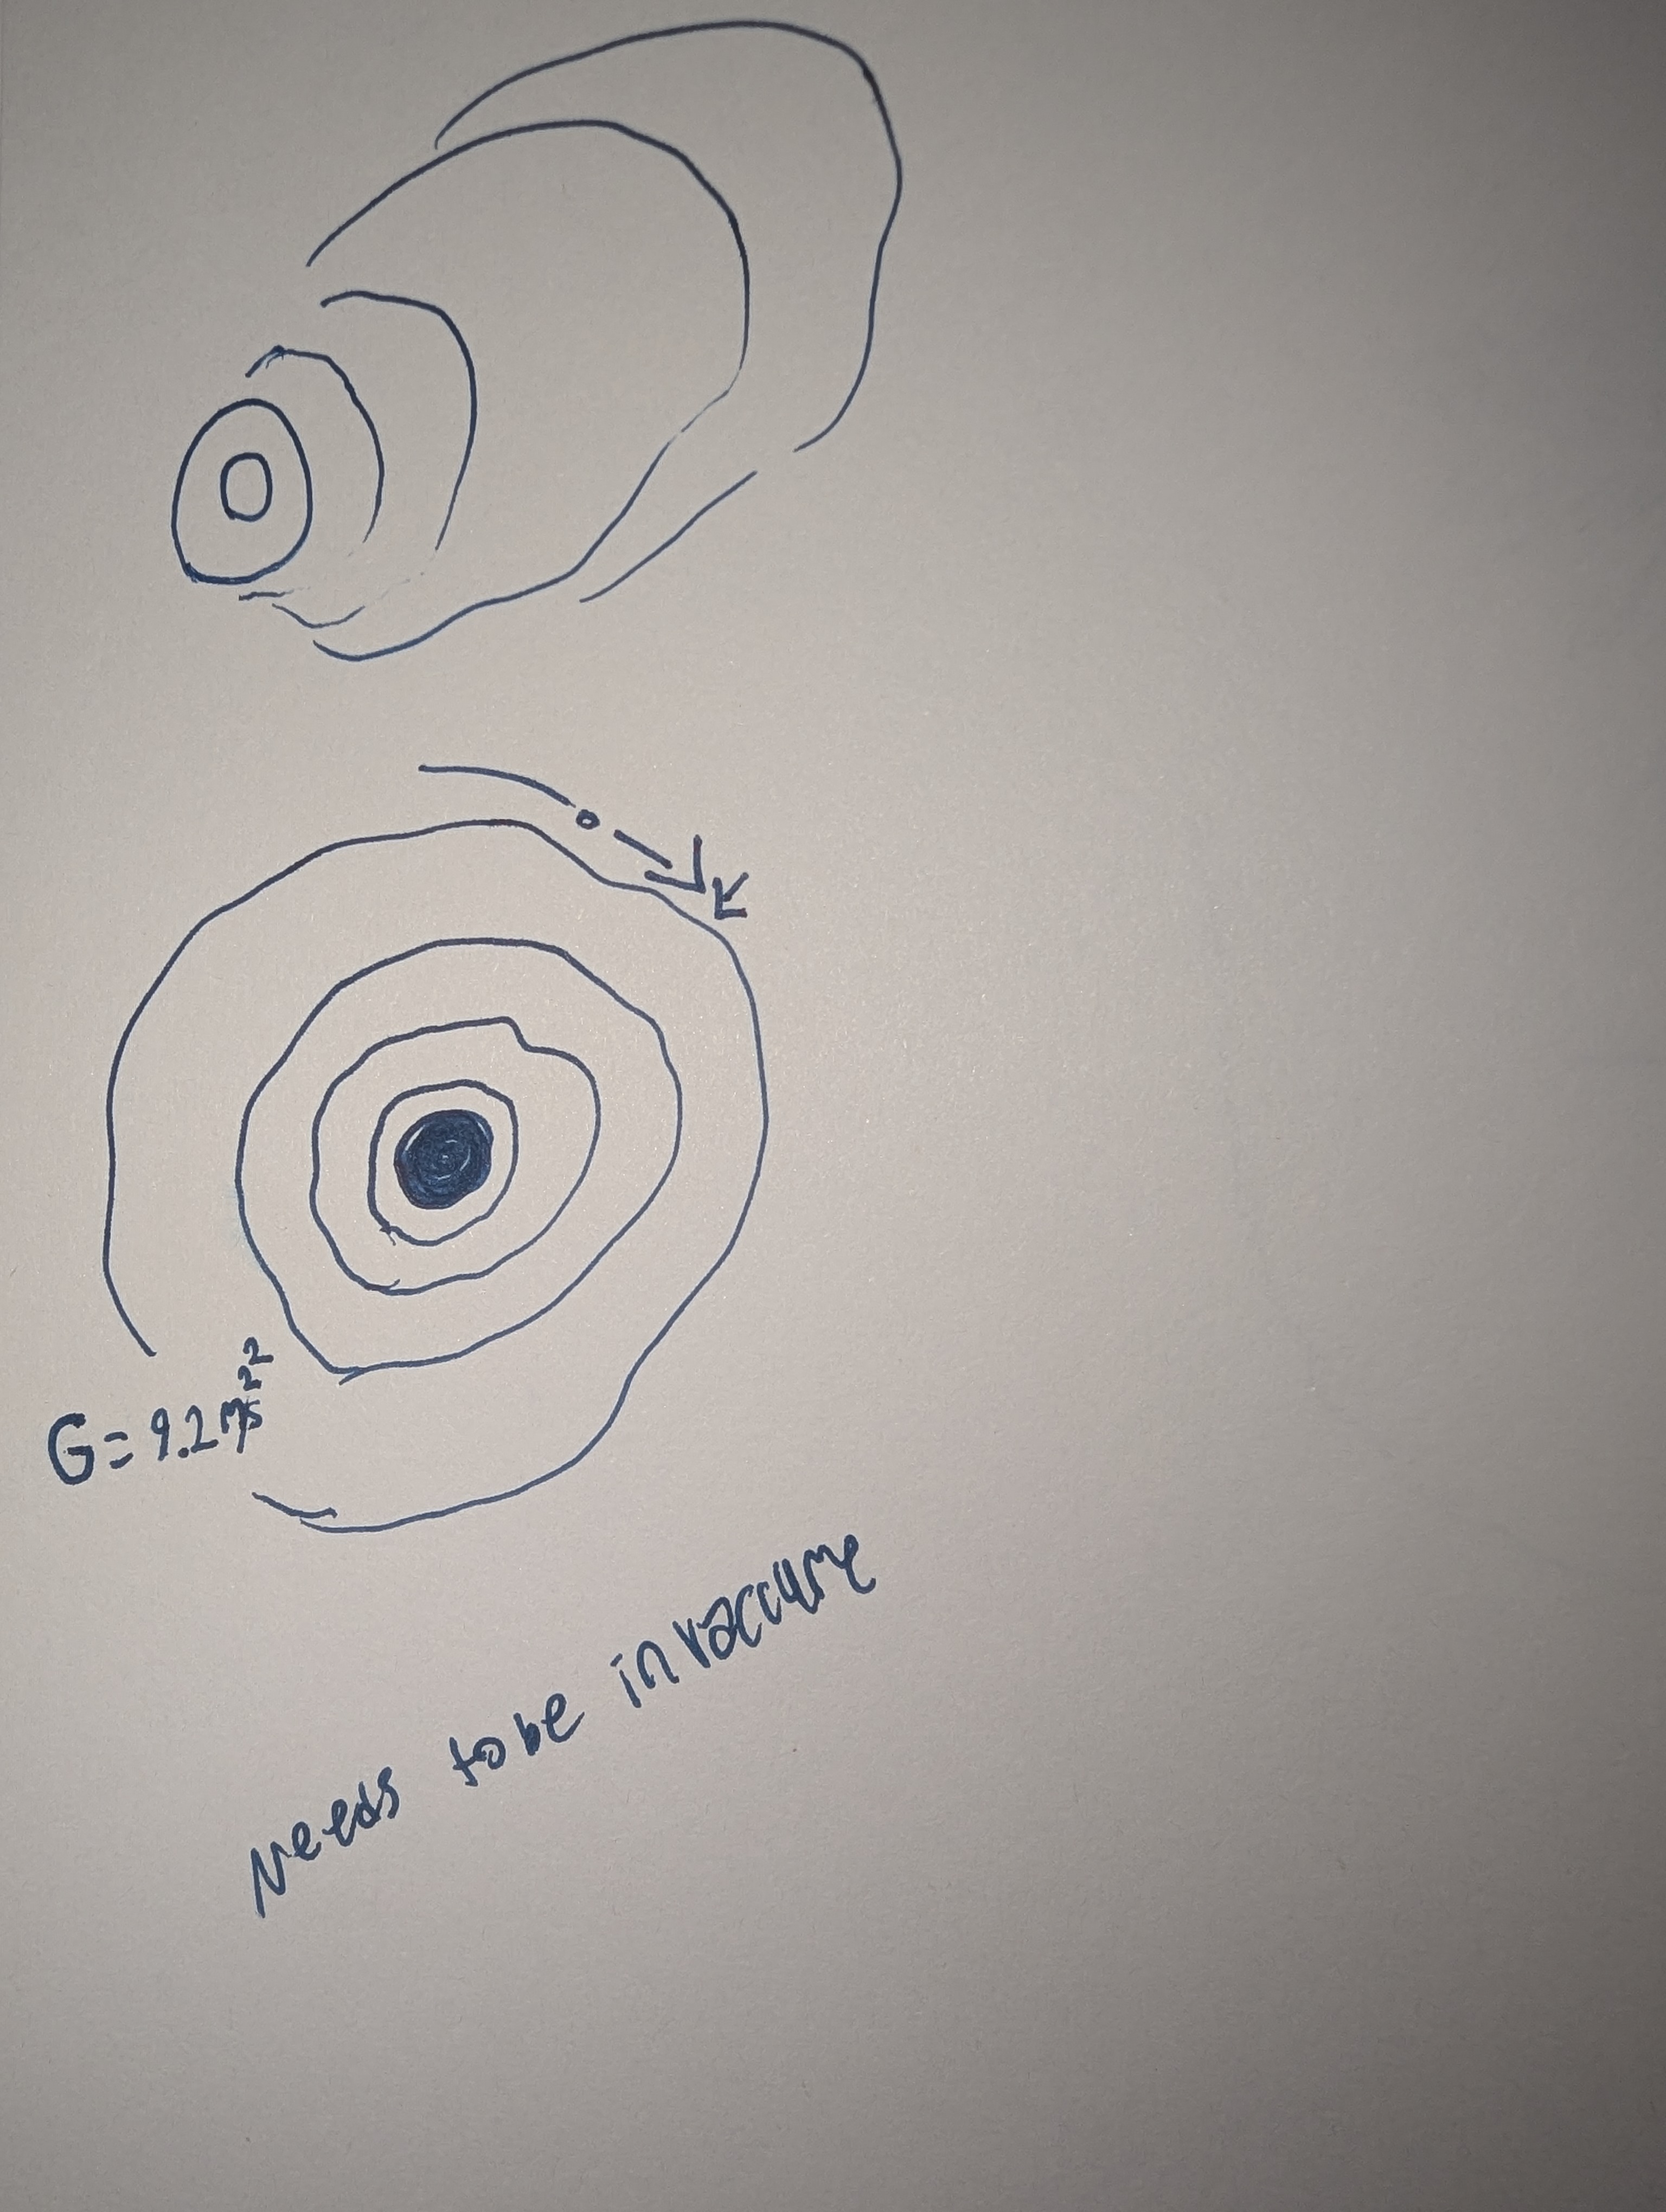 G = 9.2 m/s²²
Needs to be in vaccume